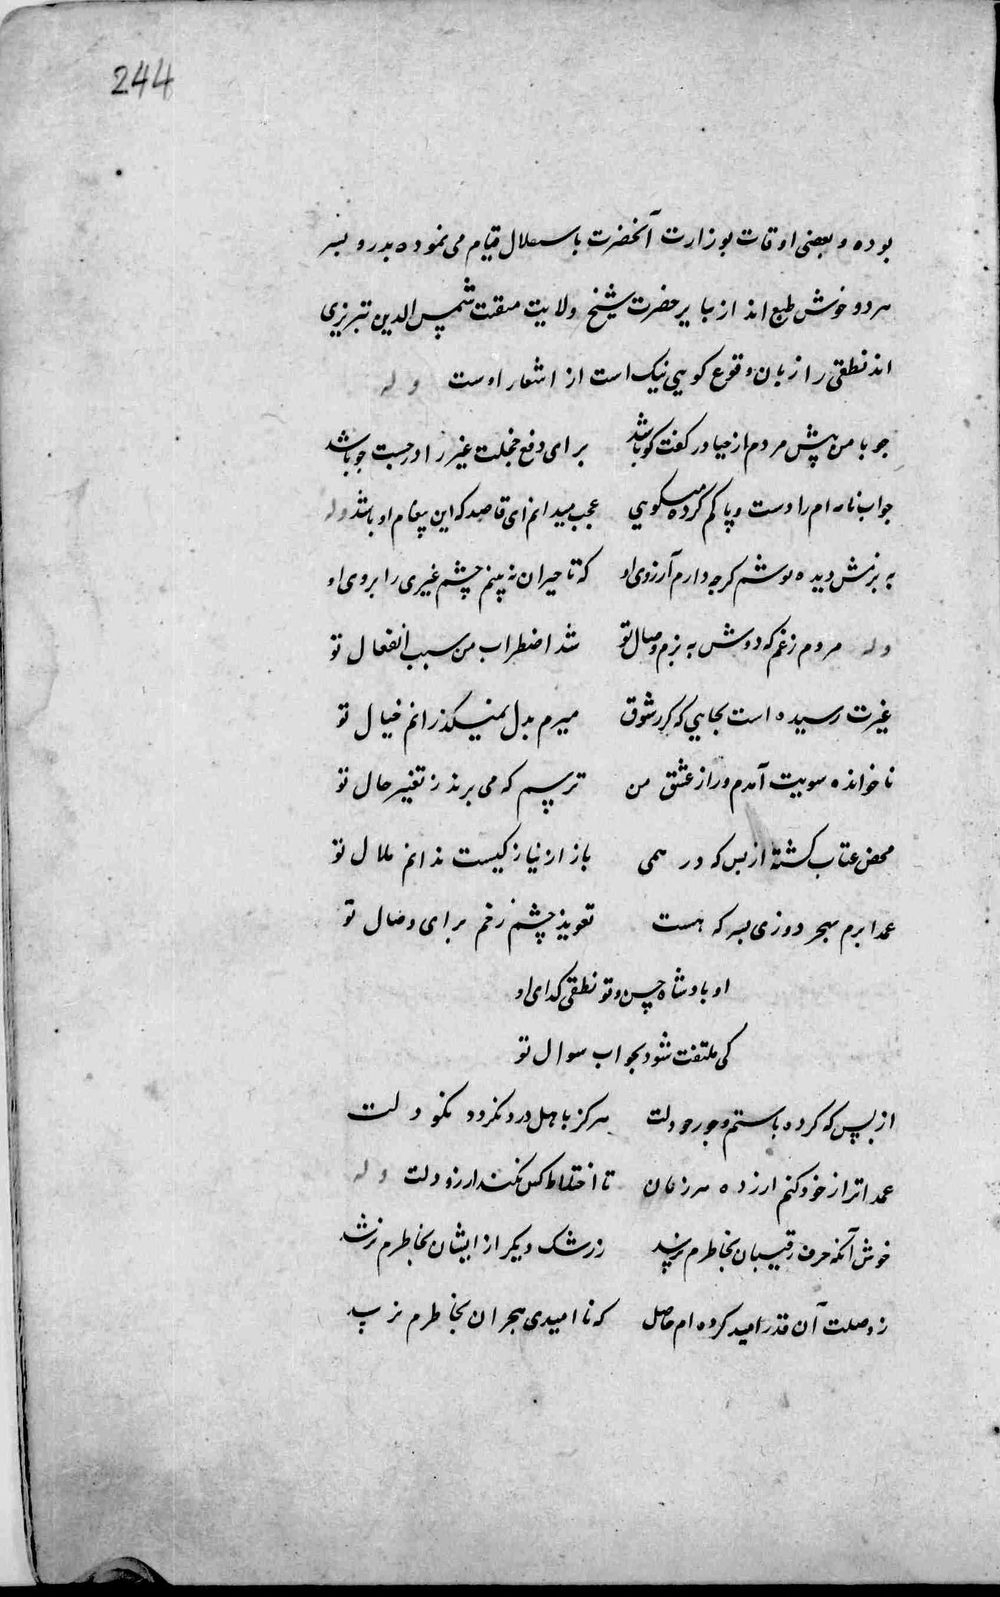 244
بوده و بعضی اوقات بوزارت آنحضرت باستقلال قیام می نموده پدر و پسر
هردو خوش طبع اند از نبایر حضرت شیخ ولایت منقبت شمس الدین تبریزی
اند نطقی را زبان وقوع کویی نیک است از اشعار اوست وله
چو با من پیش مردم از حیا در گفت کو باشد برای دفع خجلت غیر را در جست جو باشد
جواب نامه ام را دست و پا کم کرده میکویی عجب میدانم ای قاصد که این پیغام او باشد وله
به بزمش دیده پوشم کرچه دارم آرزوی او که تا حیران نه بینم چشم غیری را بروی او
وله مردم ز غم که دوش به بزم وصال تو شد اضطراب من سبب انفعال تو
غیرت رسیده است بجایی که کر ز شوق میرم بدل نمیکذرانم خیال تو
ناخوانده سویت آمدم و راز عشق من ترسم که می برند ز تغیر حال تو
محض عتاب کشته از بس که درهمی باز از نیاز کیست ندانم ملال تو
عمدا برم بهجر دو روزی بسر که هست تعویذ چشم زخم برای وصال تو
او بادشاه حسن و تو نطقی کدای او
کی ملتفت شود بجواب سوال تو
از بس که کرده با ستم و جور خو دلت هرکز باهل درد نکردد نکو دلت
عمدا ترا ز خود کنم ازرده هر زمان تا اختلاط کس نکند ارزو دلت وله
خوش آنکه حرف رقیبان بخاطرم نرسد ز رشک دیکر ازایشان بخاطرم نرسد
ز وصلت آن قدر امید کرده ام حاصل که ناامیدی هجران بخاطرم نرسد